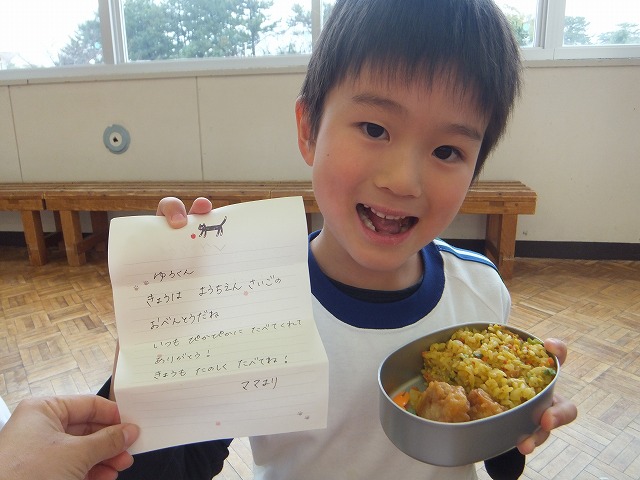 ゆうくん
きょうは ようちえん さいごの
おべんとうだね
いつも ぴかぴかに たべてくれて
ありがとう!
きょうも たのしく たべてね!
ママより